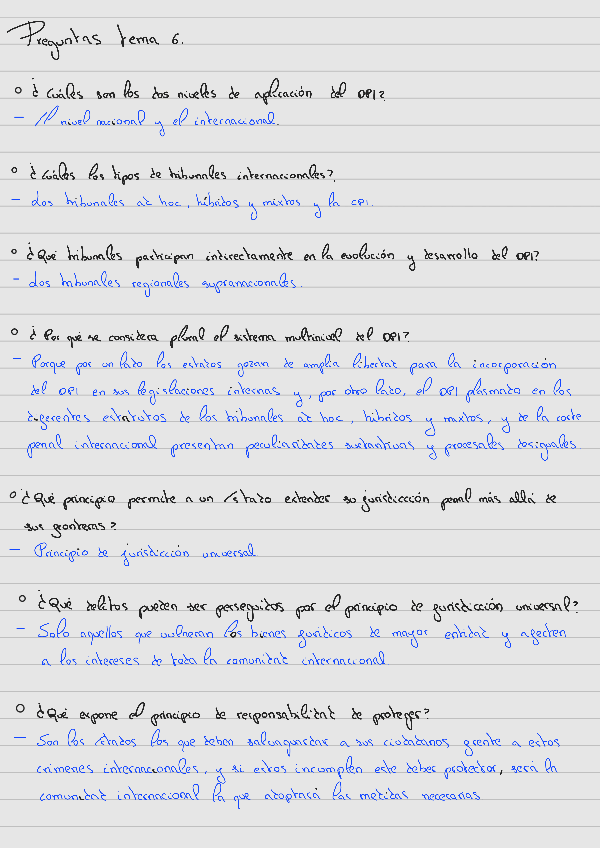 Preguntas tema 6.
○ ¿Cuáles son los dos niveles de aplicación del DPI?
– El nivel nacional y el internacional.
○ ¿Cuáles los tipos de tribunales internacionales?
– Los tribunales ad hoc, híbridos y mixtos y la CPI.
○ ¿Qué tribunales participan indirectamente en la evolución y desarrollo del DPI?
– Los tribunales regionales supranacionales.
○ ¿Por qué se considera plural el sistema multinivel del DPI?
– Porque por un lado los estados gozan de amplia libertad para la incorporación
del DPI en sus legislaciones internas y, por otro lado, el DPI plasmado en los
diferentes estatutos de los tribunales ad hoc, híbridos y mixtos, y de la corte
penal internacional presentan peculiaridades sustantivas y procesales desiguales.
○ ¿Qué principio permite a un Estado extender su jurisdicción penal más allá de
sus fronteras?
– Principio de jurisdicción universal
○ ¿Qué delitos pueden ser perseguidos por el principio de jurisdicción universal?
– Solo aquellos que vulneran los bienes jurídicos de mayor entidad y afecten
a los intereses de toda la comunidad internacional
○ ¿Qué expone el principio de responsabilidad de proteger?
– Son los Estados los que deben salvaguardar a sus ciudadanos frente a estos
crímenes internacionales, y si estos incumplen este deber protector, será la
comunidad internacional la que adoptará las medidas necesarias